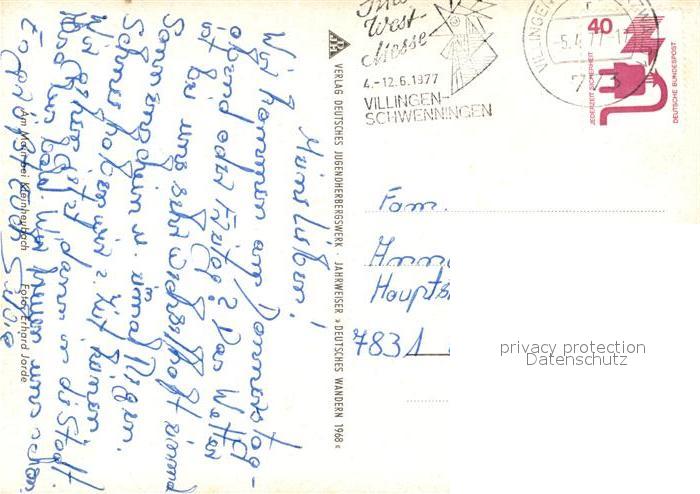 Meine Lieben!
Wir kommen am Donnerstag-
abend oder Freitag? Das Wetter
ist bei uns sehr wechselhaft einmal
Sonnenschein u. einmal Regen.
Schnee haben wir z. Zeit keinen
Wir gehen jetzt dann in die Stadt.
Also bis bald. Wir freuen uns schon.
Es grüßt euch Silvia
Am Main bei Kleinheubach Foto: Erhard Jorde
VERLAG DEUTSCHES JUGENDHERBERGSWERK · JAHRWEISER »DEUTSCHES WANDERN 1968«
West-
Messe
4.–12.6.1977
VILLINGEN-
SCHWENNINGEN
VILLINGEN
-5.4.77-17
773
40
JEDERZEIT SICHERHEIT
DEUTSCHE BUNDESPOST
Fam.
Haupts
7831
privacy protection
Datenschutz